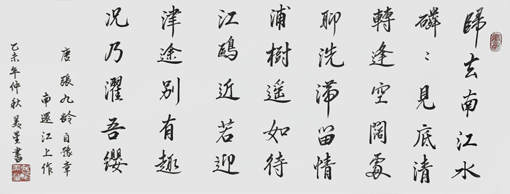 歸去南江水
磷〻見底清
轉逢空闊處
聊洗滞留情
浦樹遥如待
江鷗近若迎
津途别有趣
况乃濯吾纓
唐張九齡自豫章
南還江上作
乙未年仲秋星書